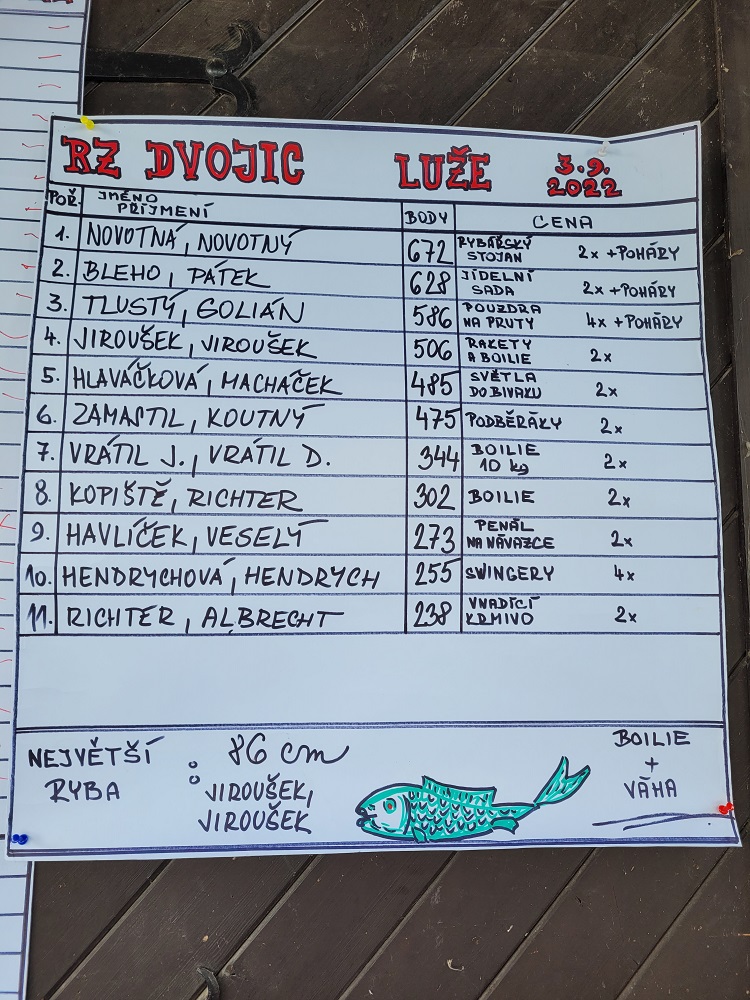 RZ DVOJIC LUŽE 3.9. 2022
POŘ. JMÉNO PŘÍJMENÍ BODY CENA
1. NOVOTNÁ, NOVOTNÝ 672 RYBÁŘSKÝ STOJAN 2x +POHÁRY
2. BLEHO, PÁTEK 628 JÍDELNÍ SADA 2x +POHÁRY
3. TLUSTÝ, GOLIÁN 586 POUZDRA NA PRUTY 4x +POHÁRY
4. JIROUŠEK, JIROUŠEK 506 RAKETY A BOILIE 2x
5. HLAVÁČKOVÁ, MACHÁČEK 485 SVĚTLA DO BIVAKU 2x
6. ZAMASTIL, KOUTNÝ 475 PODBĚRÁKY 2x
7. VRÁTIL J., VRÁTIL D. 344 BOILIE 10 kg 2x
8. KOPIŠTĚ, RICHTER 302 BOILIE 2x
9. HAVLÍČEK, VESELÝ 273 PENÁL NA NÁVAZCE 2x
10. HENDRYCHOVÁ, HENDRYCH 255 SWINGERY 4x
11. RICHTER, ALBRECHT 238 VNADÍCÍ KRMIVO 2x
NEJVĚTŠÍ RYBA : 86 cm
JIROUŠEK,
JIROUŠEK
BOILIE
+
VÁHA